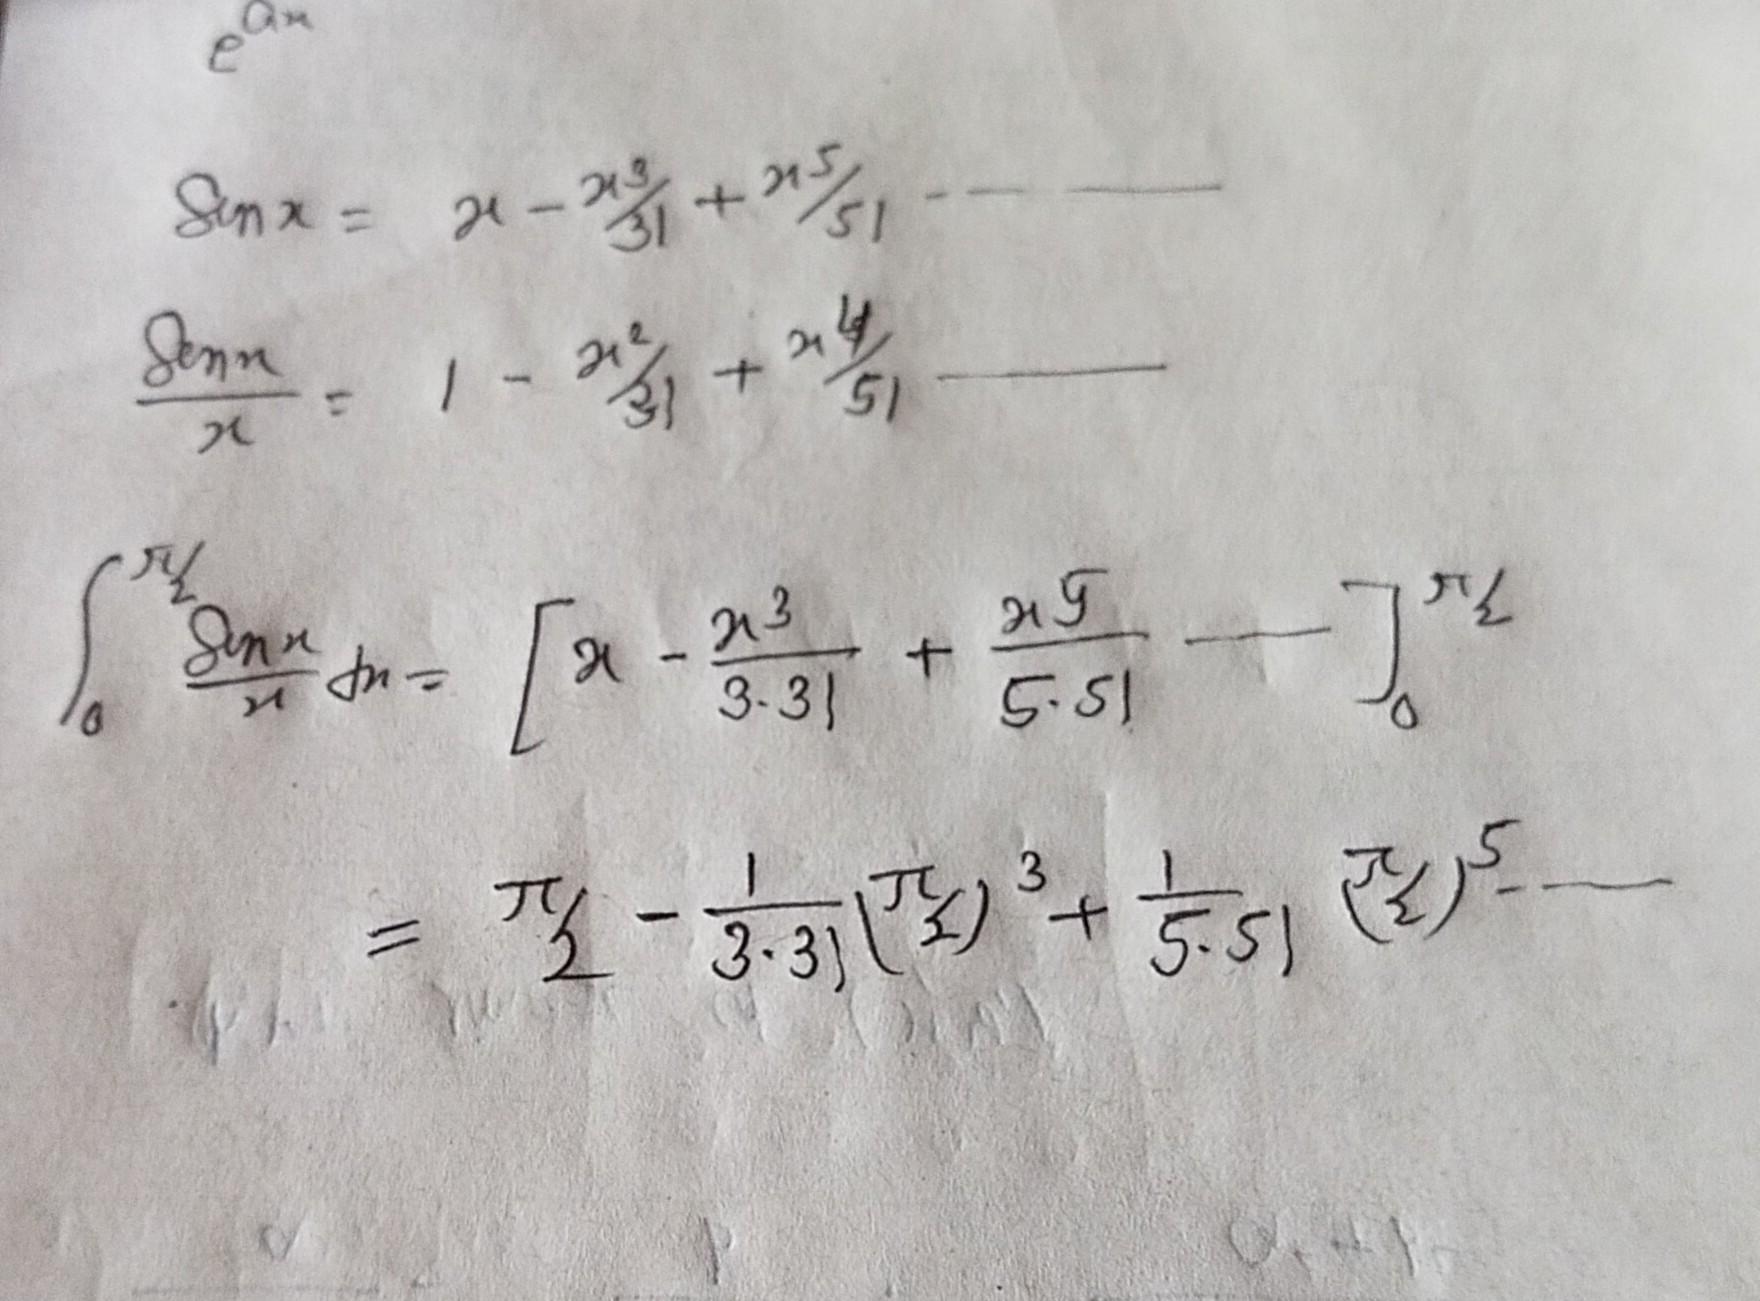 e^{ax}
Sin x = x - x³/3! + x⁵/5! - - ——
Sin x / x = 1 - x²/3! + x⁴/5! ———
∫₀^{π/2} Sin x / x dx = [x - x³/3·3! + x⁵/5·5! ——]₀^{π/2}
= π/2 - 1/3·3! (π/2)³ + 1/5·5! (π/2)⁵ - ——